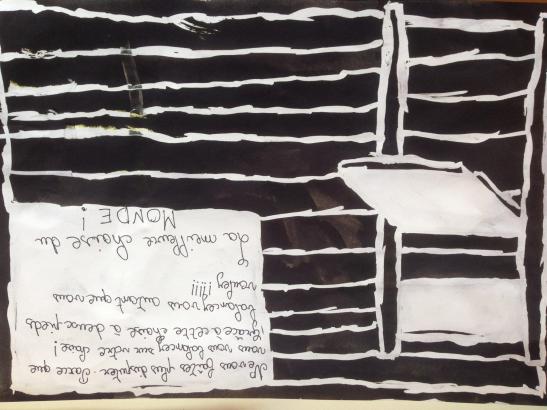 Ne vous faites plus disputer. Parce que
vous vous balancez sur votre chaise!
Grâce à cette chaise à deux pieds
balancez vous autant que vous
voulez !!!!!
La meilleure chaise du
MONDE!